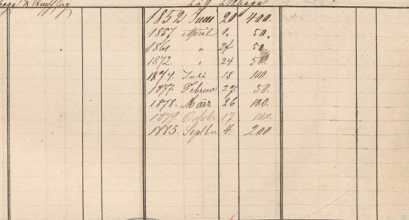 1852 Juni 20 400.
1857 April 1. 50.
1861 " 24 50.
1872. " 24 50.
1874 Juli 18 100.
1877 Februar 27 50.
1878. März 26 100.
1879 Octob 17 100.
1883. Septbr 4. 200